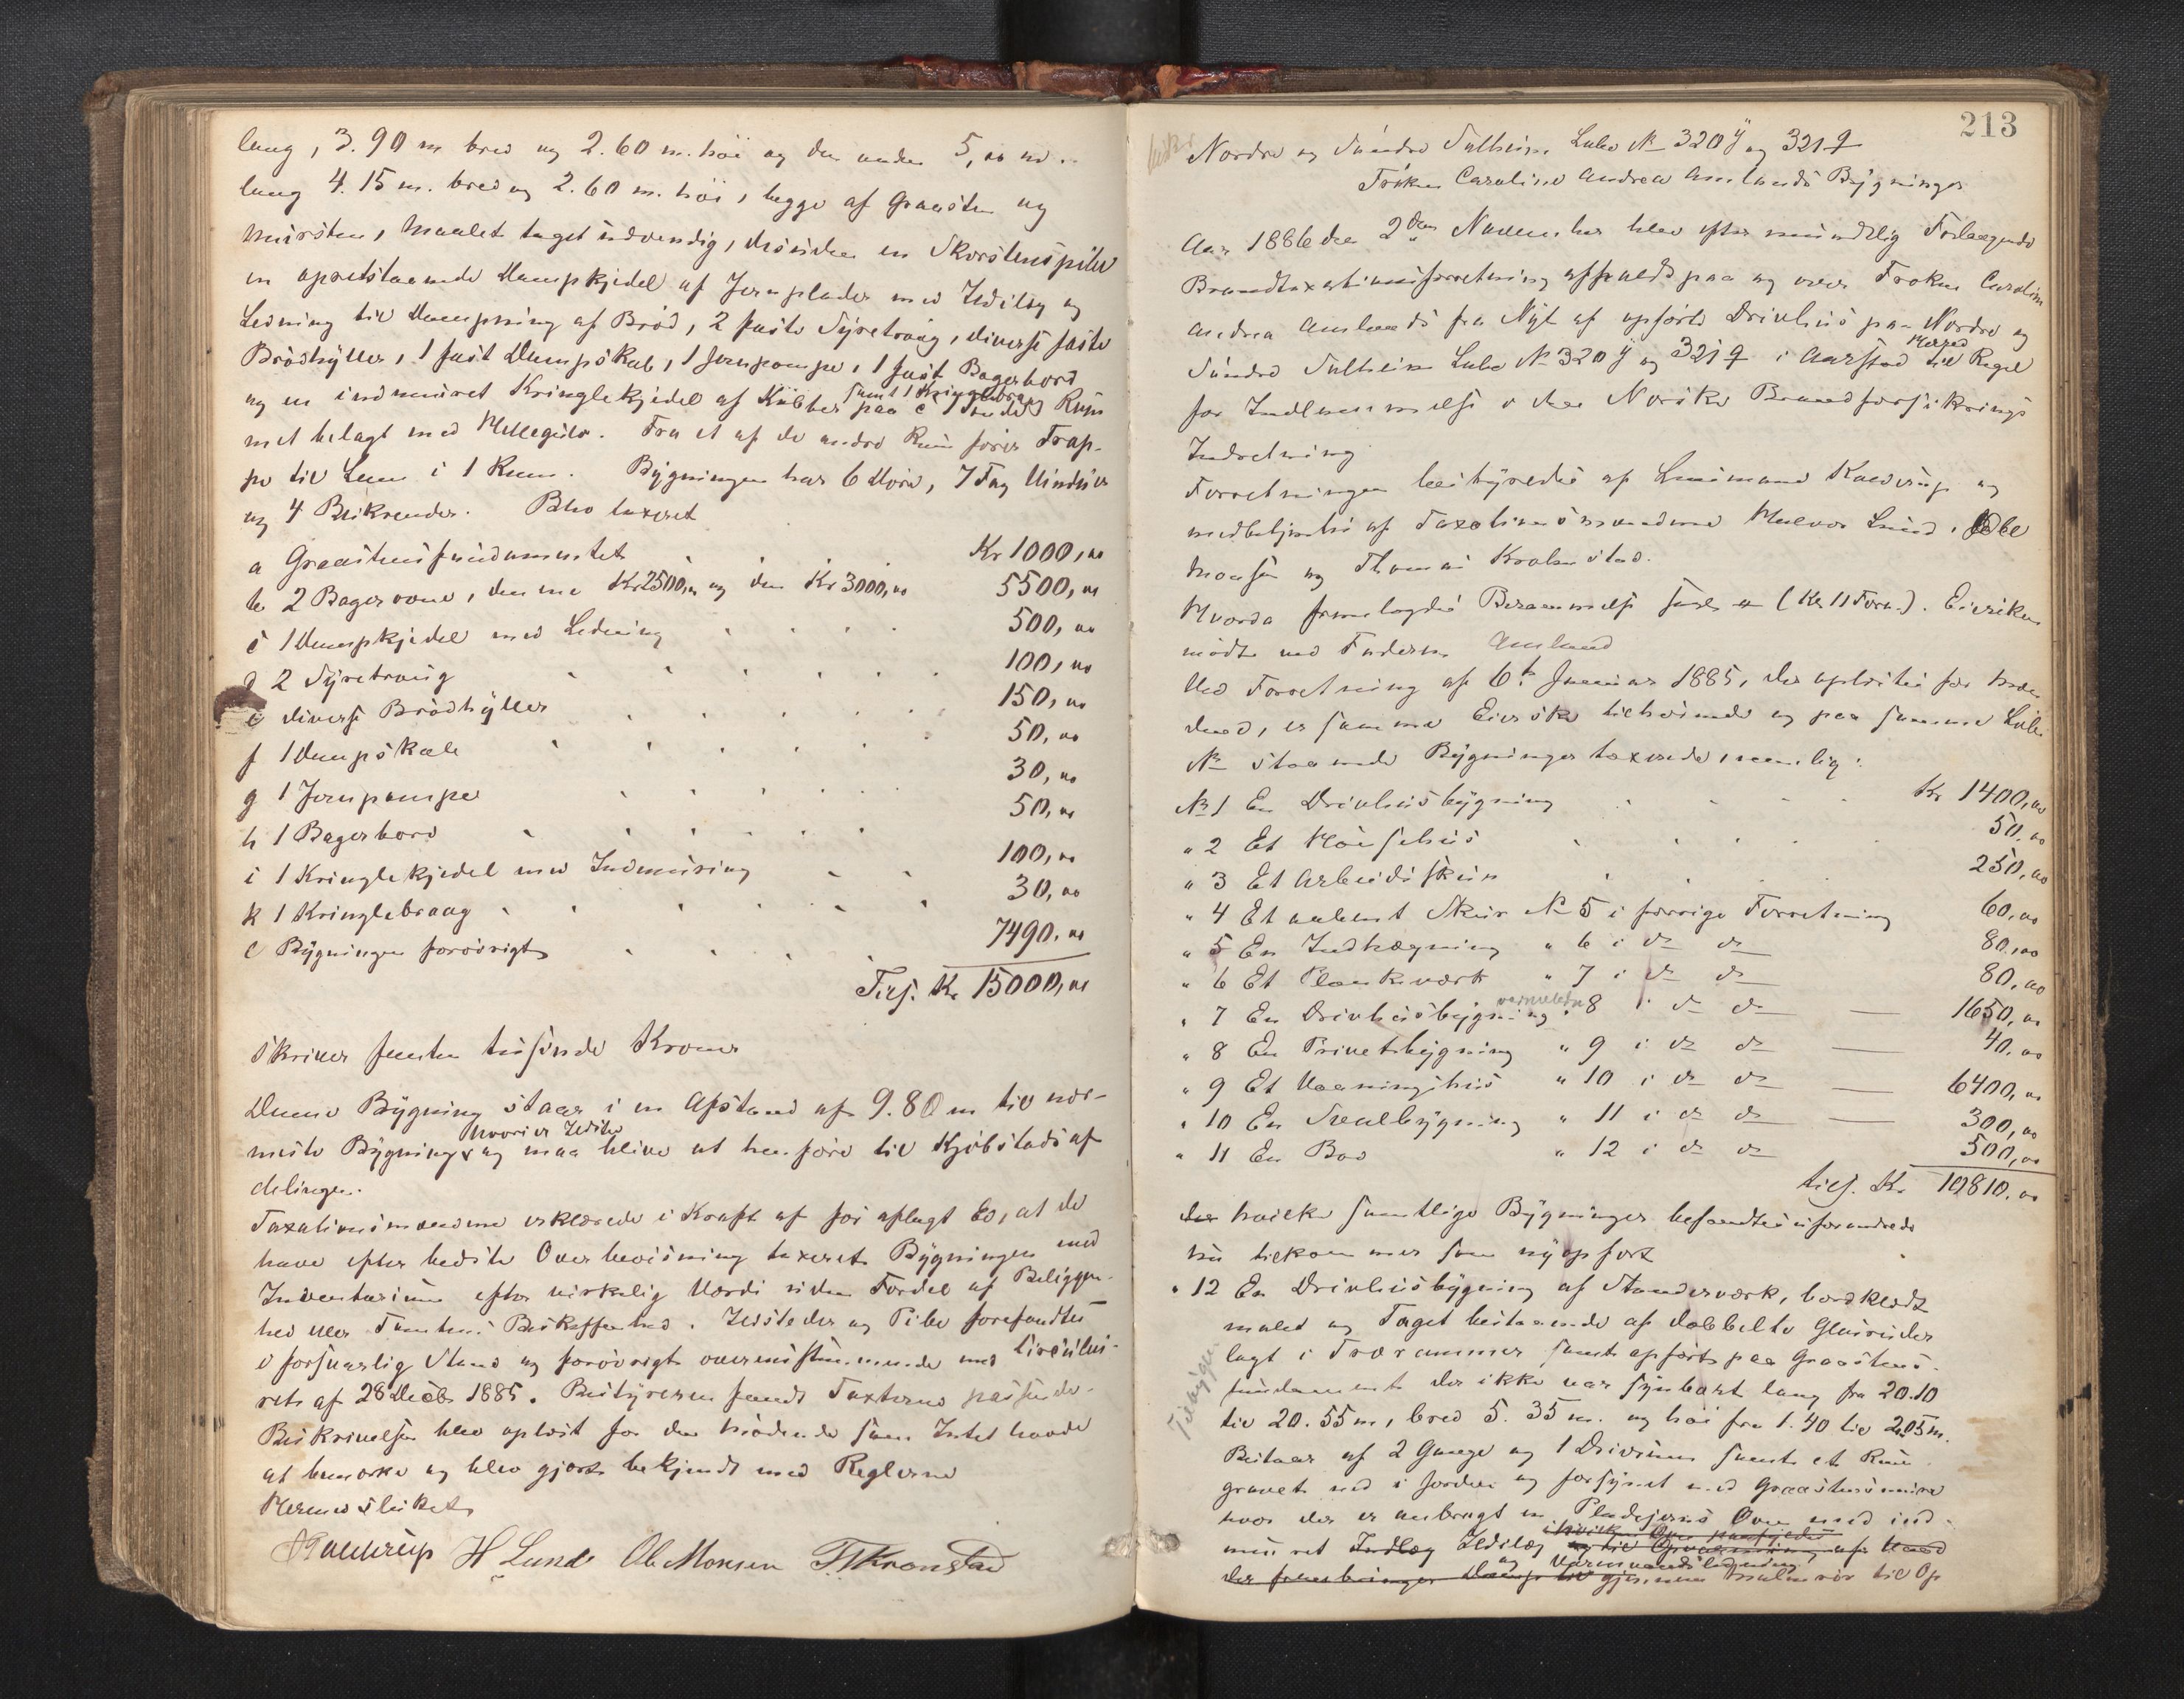 lang, 3.90 m bred og 2.60 m. høi og den anden 5,00 m.
lang 4.15 m. bred og 2.60 m. høi, begge af Graasten og
Mursten, Maalet taget indvendig, desuden en Skorstenspibe
en opretstaaende Dampkjedel af Jernplader med Ildsted og
Ledning til Dampning af Brød, 2 faste Syretraug, diverse faste
Brødhylder, 1 fast Dampskab, 1 Jernpompe, 1 fast Bagerbord
samt 1 Kringlebraag
og en indmuret Kringlekjedel af Kobber paa Rum
met belagt med Hellegulv. Fra et af de andre Rum fører Trap-
pe til Lem i 1 Rum. Bygningen har 6 Døre, 7 Fag Vinduer
og 4 Blikrender. Blev taxeret
a Graastensfundamentet Kr 1000,00
b 2 Bagerovne, den ene Kr 2500,00 og den Kr 3000,00 5500,00
c 1 Dampkjedel med Ledning 500,00
d 2 Syretraug 100,00
e diverse Brødhylder 150,00
f 1 Dampskab 50,00
g 1 Jernpompe 30,00
h 1 Bagerbord 50,00
i 1 Kringlekjedel med Indmuring 100,00
k 1 Kringlebraag 30,00
l Bygningen forøvrigt 7490,00
Tils. Kr 15000,00
skriver femten tusinde Kroner
Denne Bygning staar i en Afstand af 9.80 m til nær-
hvori er Ildsted
meste Bygning og maa blive at henføre til Kjøbstadsaf
delingen.
Taxationsmændene erklærede i Kraft af før aflagt Ed, at de
have efter bedste Overbevisning taxeret Bygningen med
Inventarium efter virkelig Værdi uden Fordel af Beliggen-
hed eller Tomtens Beskaffenhed. Ildsteder og Pibe forefandtes
i forsvarlig Stand og forøvrigt overensstemmende med Circulæ-
ret af 28 Decbr 1885. Bestyreren fandt Taxterne passende.
Beskrivelsen blev oplæst for den mødende som Intet havde
at bemærke og blev gjort bekjendt med Reglerne
Hermed sluttet
Kaldrup H Lund Ole Monsen T. Kronstad
213
Nordre og Søndre Solheim Løbe No 320 y og 321 q
Frøken Caroline Andrea Amlands Bygninger
Aar 1886 den 2den November blev efter mundtlig Forlangende
Brandtaxationsforretning afholdt paa og over Frøken Caroline
Andrea Amlands fra Nyt af opførte Drivhus paa Nordre og
Herred
Søndre Solheim Løbe No 320 y og 321 q i Aarstad til Regel
for Indlemmelse i den Norske Brandforsikrings
Indretning
Forretningen bestyredes af Lensmand Kaldrup og
medbetjentes af Taxationsmændene Halvor Lund, Ole
Monsen og Thomas Kronstad.
Hvorda fremlagdes Berammelse (Kl 11 Form.). Eiersken
mødte ved Faderen Amland
Ved Forretning af 6te Januar 1885, der oplæstes for Mæn
dene, er samme Eierske tilhørende og paa samme Løbe
No staaende Bygninger taxerede, nemlig:
No 1 En Drivhusbygning Kr 1400,00
" 2 Et Hønsehus 50,00
" 3 Et Arbeidsskur 250,00
" 4 Et aabent Skur No 5 i forrige Forretning 60,00
" 5 En Indhægning " 6 i do do 80,00
" 6 Et Plankeværk " 7 i do do 80,00
" 7 En Drivhusbygning " 8 i do do — 1650,00
" 8 En Privetbygning " 9 i do do — 40,00
" 9 Et Vaaningshus " 10 i do do — 6400,00
" 10 En Staldbygning " 11 i do do — 300,00
" 11 En Bod " 12 i do do 500,00
tils. Kr 10810,00
hvilke samtlige Bygninger befandtes uforandrede
nu tilkommer som nyopført
" 12 En Drivhusbygning af Standerværk, bordklædt
malet og Taget bestaaende af dobbelte Glasruder
lagt i Trærammer samt opført paa Graastens-
fundament der ikke var synbart lang fra 20.10
til 20.55 m, bred 5.35 m. og høi fra 1.40 til 2.05 m.
Tilbygges
Bestaar af 2 Gange og 1 Drivrum samt et Rum
gravet ned i Jorden og forsynet med Graastensmure
hvor der er anbragt en Pladejerns Ovn med ind-
muret Indlæg Ildsted og til Opvarmning af Vand
og Varmvandsledning
der frembringer Damp til gjennem Malmrør til Op